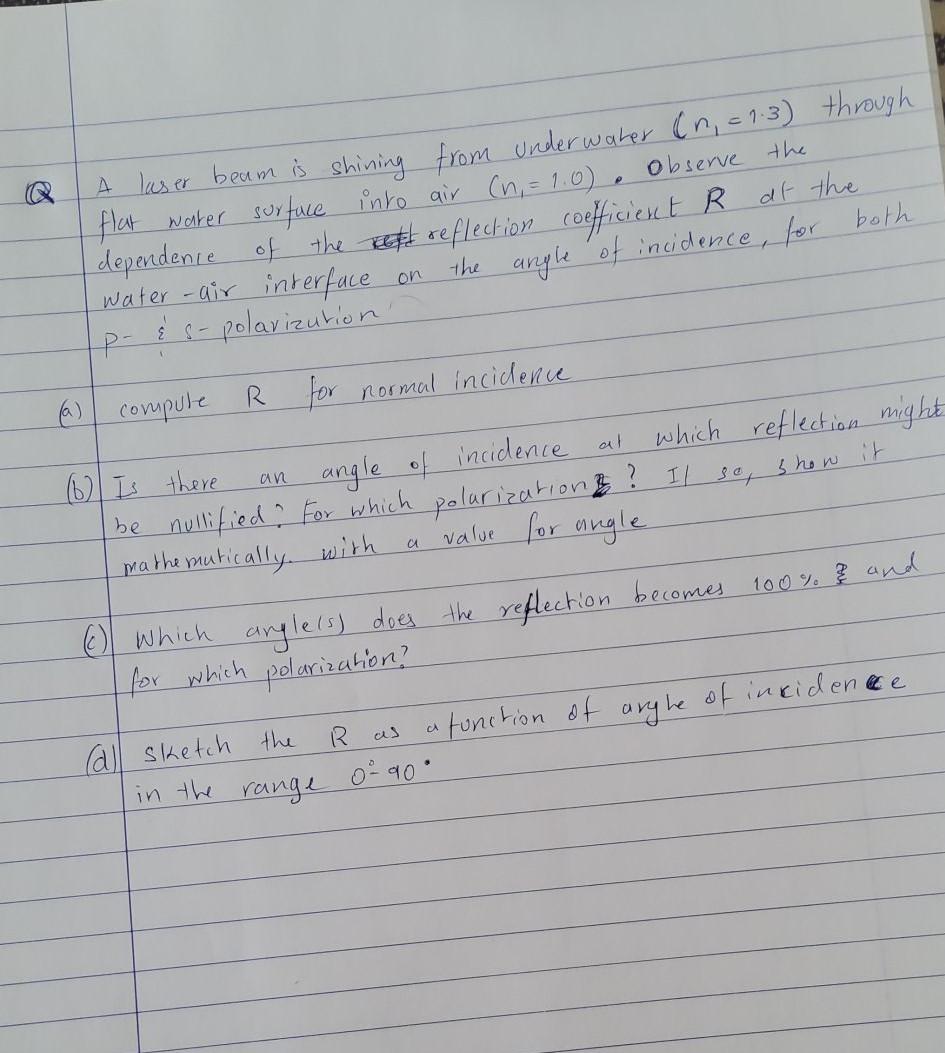 Q A laser beam is shining from underwater (n₁ = 1.3) through
flat water surface into air (n₁ = 1.0). Observe the
dependence of the reflection coefficient R at the
water-air interface on the angle of incidence, for both
p- & s-polarization
(a) compute R for normal incidence
(b) Is there an angle of incidence at which reflection might
be nullified? For which polarization? If so, show it
mathematically. with a value for angle
(c) Which angle(s) does the reflection becomes 100% and
for which polarization?
(d) sketch the R as a function of angle of incidence
in the range 0°-90°